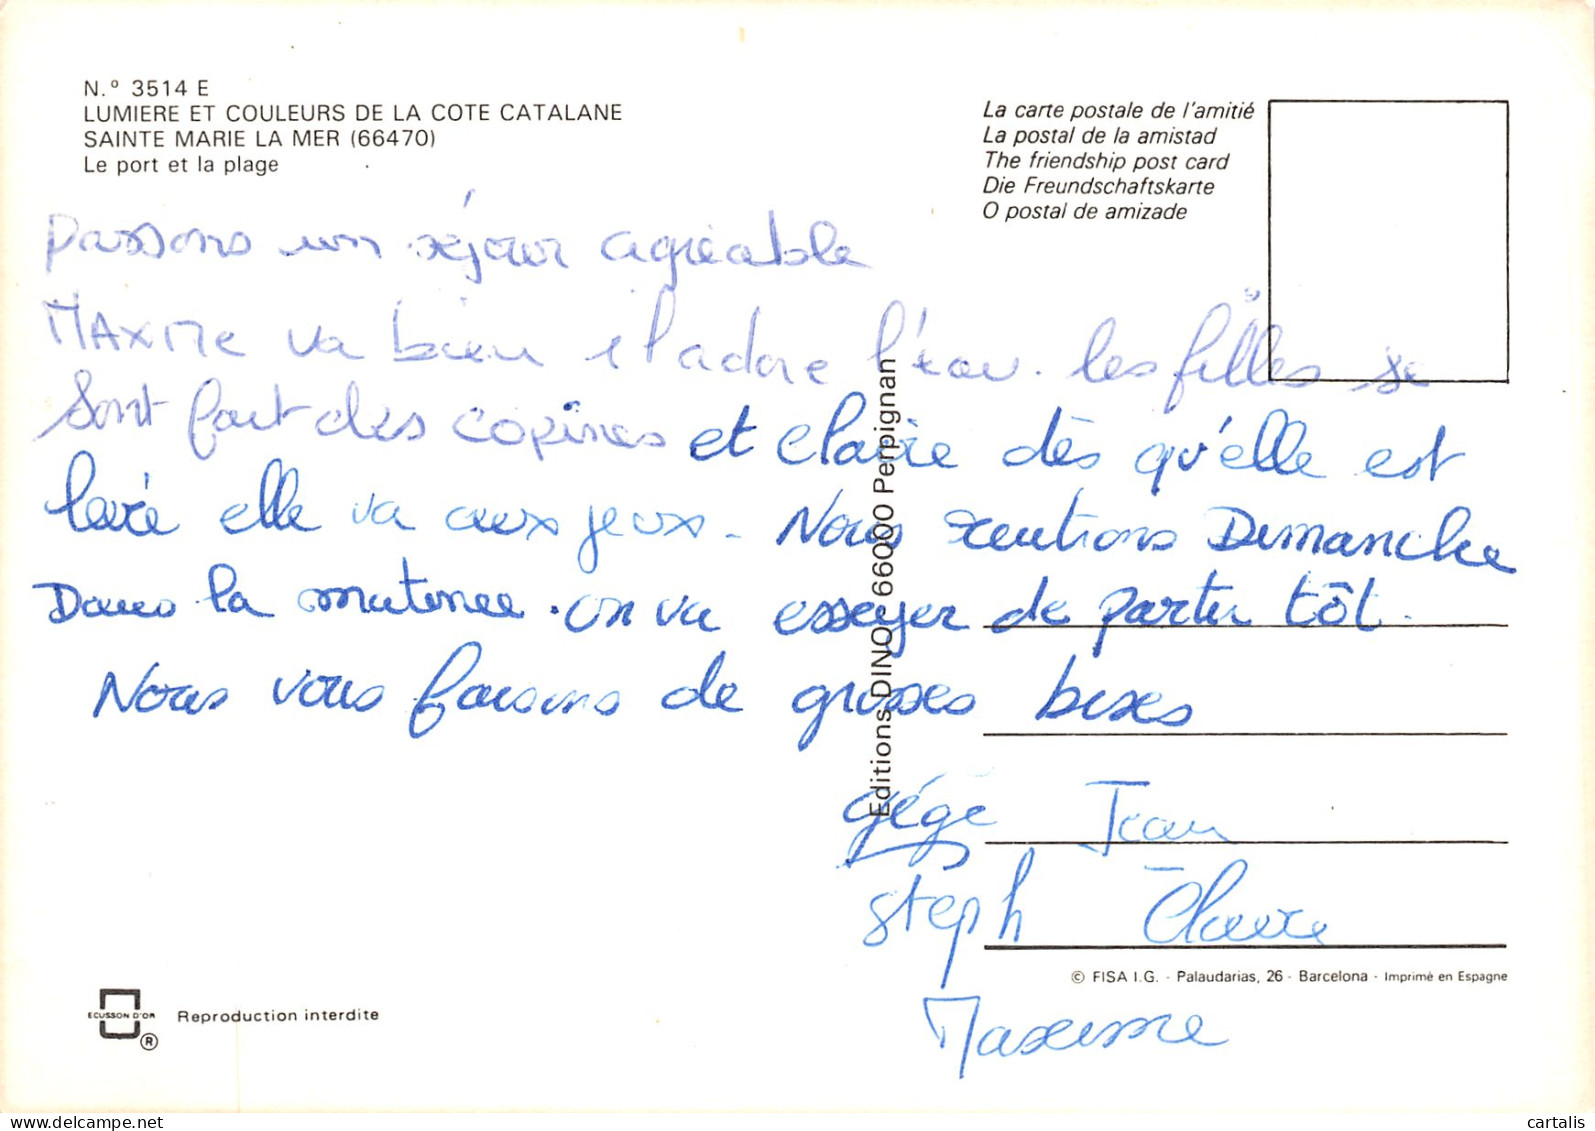 N.º 3514 E
LUMIERE ET COULEURS DE LA COTE CATALANE
SAINTE MARIE LA MER (66470)
Le port et la plage
La carte postale de l'amitié
La postal de la amistad
The friendship post card
Die Freundschaftskarte
O postal de amizade
passons un séjour agréable
MAXIMe va bien il adore l'eau. les filles se
sont fait des copines et Claire dès qu'elle est
levée elle va aux jeux. Nous rentrons Dimanche
Dans la matinee. on va essayer de partir tôt.
Nous vous faisons de grosses bises
Editions DINO - 66000 Perpignan
gégé Jean
steph Claire
Maxime
© FISA I.G. - Palaudarias, 26 - Barcelona - Imprimé en Espagne
ECUSSON D'OR
®
Reproduction interdite
cartalis